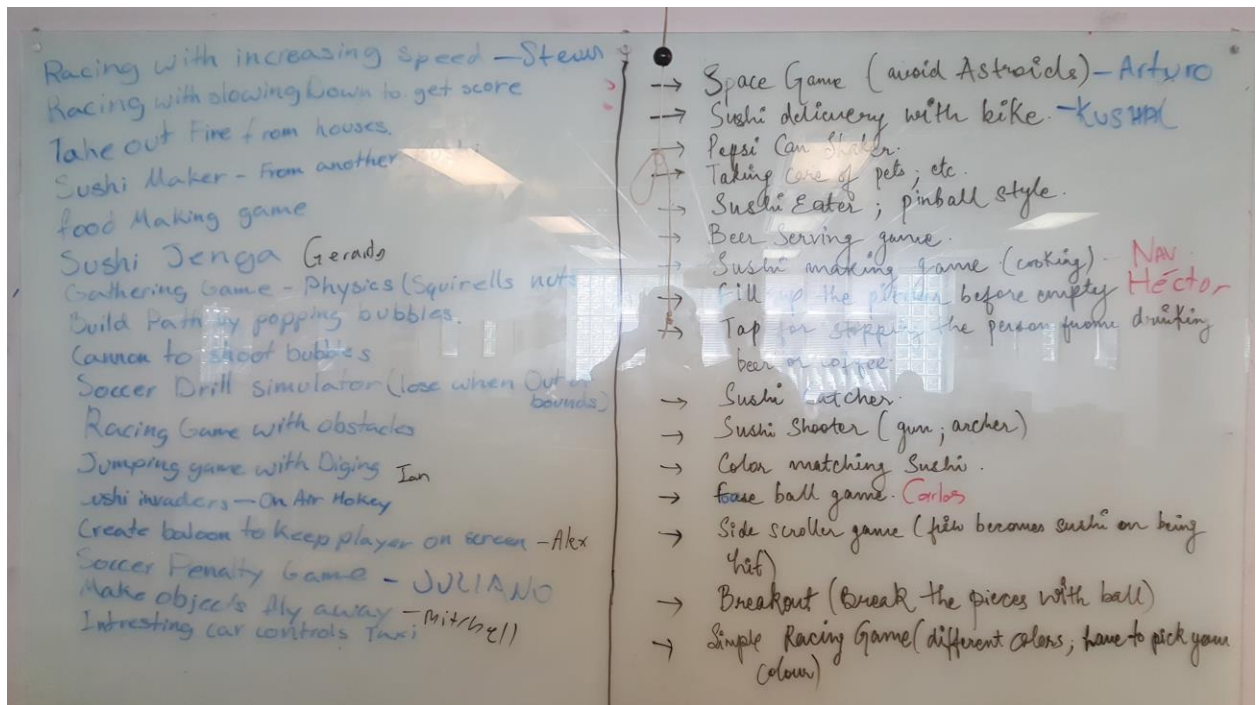 Racing with increasing speed -
Racing with slowing Down to get score
Take out Fire from houses.
Sushi Maker - From another
food Making game
Sushi Jenga Gerado
Gathering Game - Physics (Squirells nuts
Build Path by popping bubbles.
Cannon to shoot bubbles
Soccer Drill simulator (lose when Out of
bounds)
Racing Game with obstacles
Jumping game with Diging Ian
ushi invaders - On Air Hokey
Create baloon to keep player on screen - Alex
Soccer Penalty Game - JULIANO
Make objects fly away - Mitchell
Intresting car controls Taxi
→ Space Game (avoid Astroids) - Arturo
→ Sushi delivery with bike. - KUSHAL
→ Pepsi Can Shaker.
→ Taking care of pets; etc.
→ Sushi Eater; pinball style.
→ Beer Serving game.
→ Sushi making game (cooking) - NAV.
→ fill up the pitcher before empty Héctor
→ Tap for stopping the person frome drinking
beer or coffee.
→ Sushi catcher.
→ Sushi Shooter (gun; archer)
→ Color matching Sushi.
→ ball game. Carlos
→ Side scroller game ( becomes sushi on being
hit)
→ Breakout (Break the pieces with ball)
→ Simple Racing Game (different colors; have to pick your
colour)